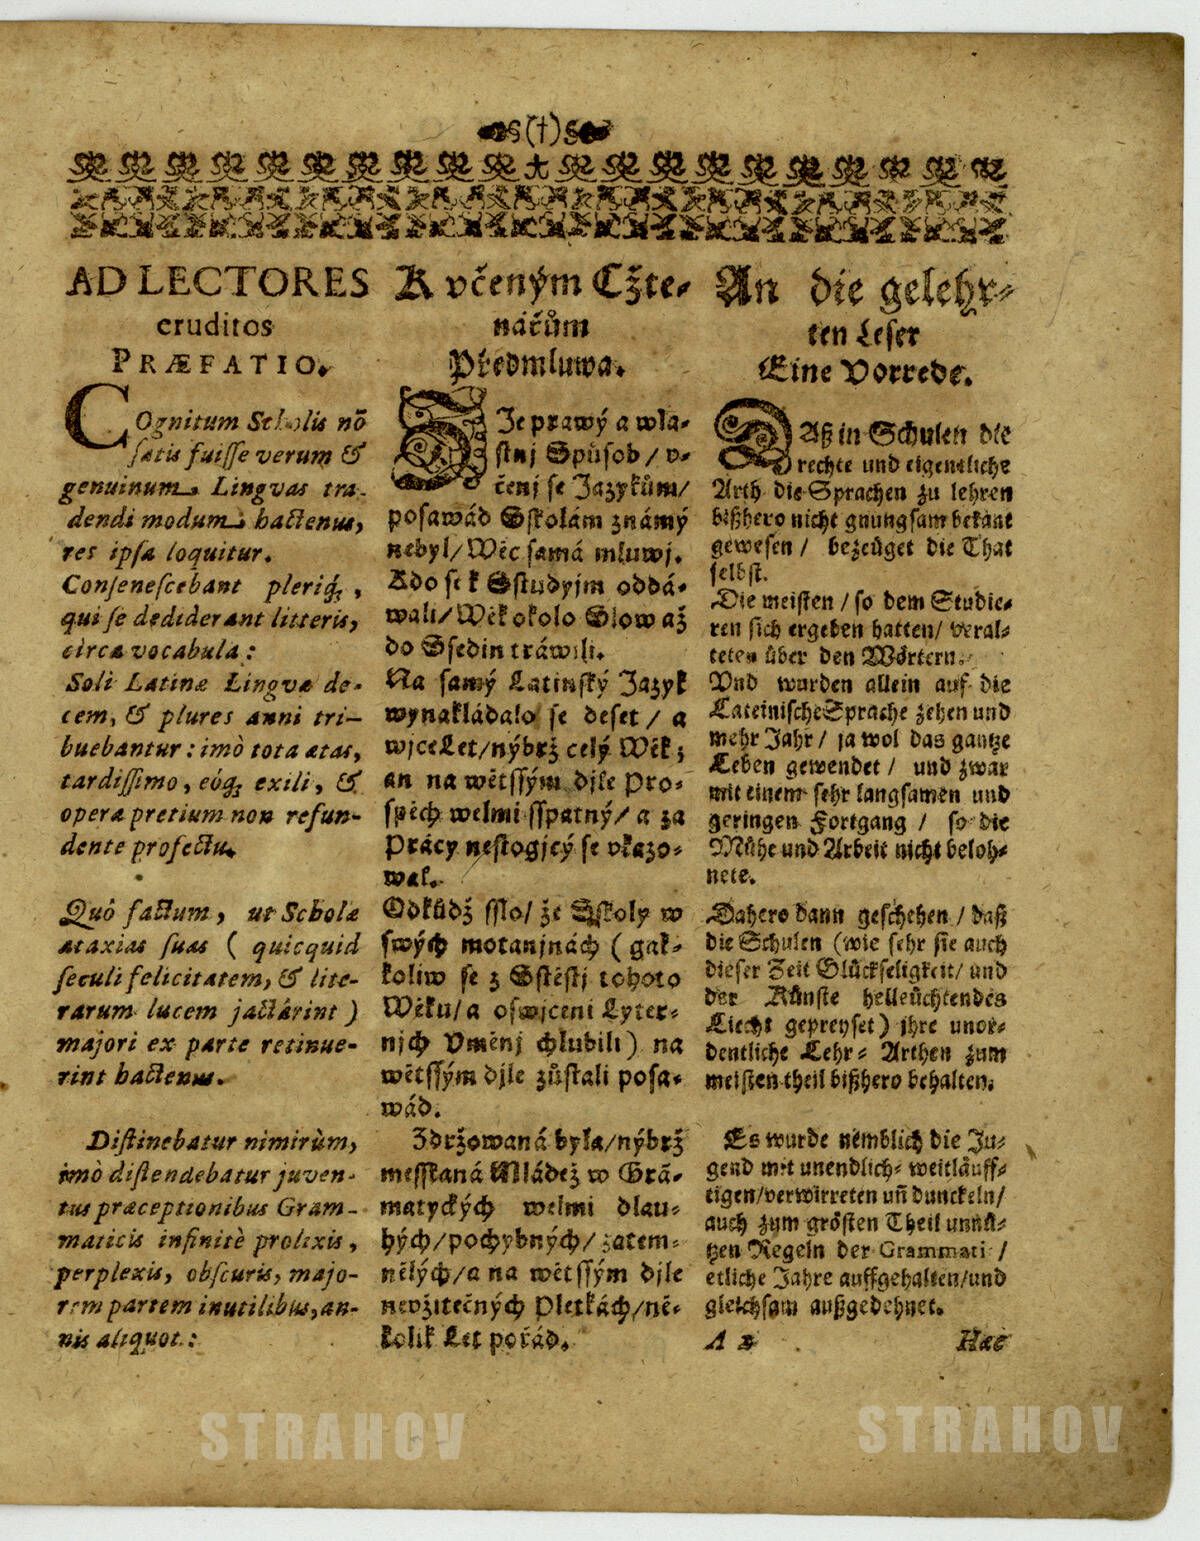 §(†)§
AD LECTORES
eruditos
PRÆFATIO.
COgnitum Scholis nõ
satis fuisse verum &
genuinum, Lingvas tra-
dendi modum, hactenus,
res ipsa loquitur.
Consenescebant pleriq;,
qui se dediderant litteris,
circa vocabula:
Soli Latinæ Lingvæ de-
cem, & plures anni tri-
buebantur: imò tota ætas,
tardissimo, eóq; exili, &
operæ pretium non refun-
dente profectu.
Quô factum, ut Scholæ
ataxias suas ( quicquid
seculi felicitatem, & lite-
rarum lucem jactârint )
majori ex parte retinue-
rint hactenus.
Distinebatur nimirùm,
imò distendebatur juven-
tus præceptionibus Gram-
maticis infinitè prolixis,
perplexis, obscuris, majo-
rem partem inutilibus, an-
nis aliquot:
K včeným Cžte-
nářům
Předmluwa.
ZJe prawý a wla-
stnj Spůsob / v-
čenj se Jazykům/
posawád Sskolám známý
nebyl/ Wěc samá mluwj.
Kdo se k Sstudyjm oddá-
wali/ Wěk okolo Slow až
do Ssedin tráwili.
Na samý Latinský Jazyk
wynakládalo se deset / a
wjce Let/ nýbrž celý Wěk;
an na wětssým djle Pro-
spěch welmi sspatný/ a za
Prácy nestogjcý se vkazo-
wal.
Odkůdž sslo/ že Sskoly w
swých motanjnách ( gak-
koliw se z Sstěstj tohoto
Wěku/ a oswjcení Lyter-
njch Vměnj chlubili ) na
wětssým djle zůstali posa-
wád.
Zdržowaná byla/ nýbrž
messkaná Mládež w Grã-
matyckých welmi dlau-
hých/ pochybných/ zatem-
nělých/ a na wětssým djle
nevžitečných Pletkách/ ně-
kolik Let pořád.
An die gelehr-
ten Leser
Eine Vorrede.
DAß in Schulen die
rechte und eigentliche
Arth die Sprachen zu lehren
bißhero nicht gnungsam bekãnt
gewesen / bezeüget die That
selbst.
Die meisten / so dem Studie-
ren sich ergeben hatten/ veral-
teten über den Wörtern.
Vnd wurden allein auf die
Lateinische Sprache zehen und
mehr Jahr / ja wol das gantze
Leben gewendet / und zwar
mit einem sehr langsamen und
geringen Fortgang / so die
Mühe und Arbeit nicht beloh-
nete.
Dahero dann geschehen / daß
die Schulen (wie sehr sie auch
dieser Zeit Glückseligkeit/ und
der Künste helleüchtendes
Liecht gepreyset) ihre unor-
dentliche Lehr- Arthen zum
meisten theil bißhero behalten.
Es wurde nemblich die Ju-
gend mit unendlich- weitläuff-
tigen/ verwirreten uñ dunckeln/
auch zum grösten Theil unnü-
tzen Regeln der Grammati /
etliche Jahre auffgehalten/ und
gleichsam außgedehnet.
A 2 Hæc
STRAHOV STRAHOV